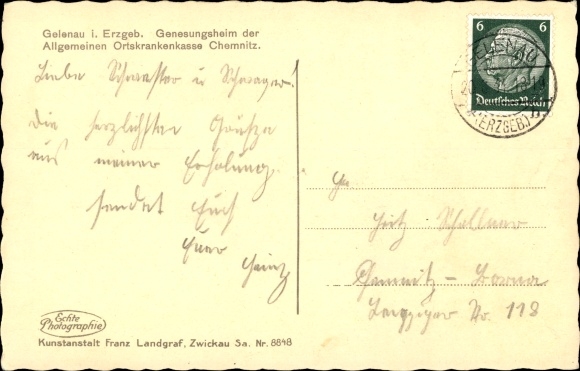 Gelenau i. Erzgeb. Genesungsheim der
Allgemeinen Ortskrankenkasse Chemnitz.
Liebe Schwester u Schwager!
Die herzlichsten Grüße
aus meiner Erholung
sendet Euch
Euer
Heinz
6 6
Deutsches Reich
GELENAU
(ERZGEB)
Fritz Schallner
Chemnitz - Borna
Leipziger Str. 118
Echte
Photographie
Kunstanstalt Franz Landgraf, Zwickau Sa. Nr. 8848